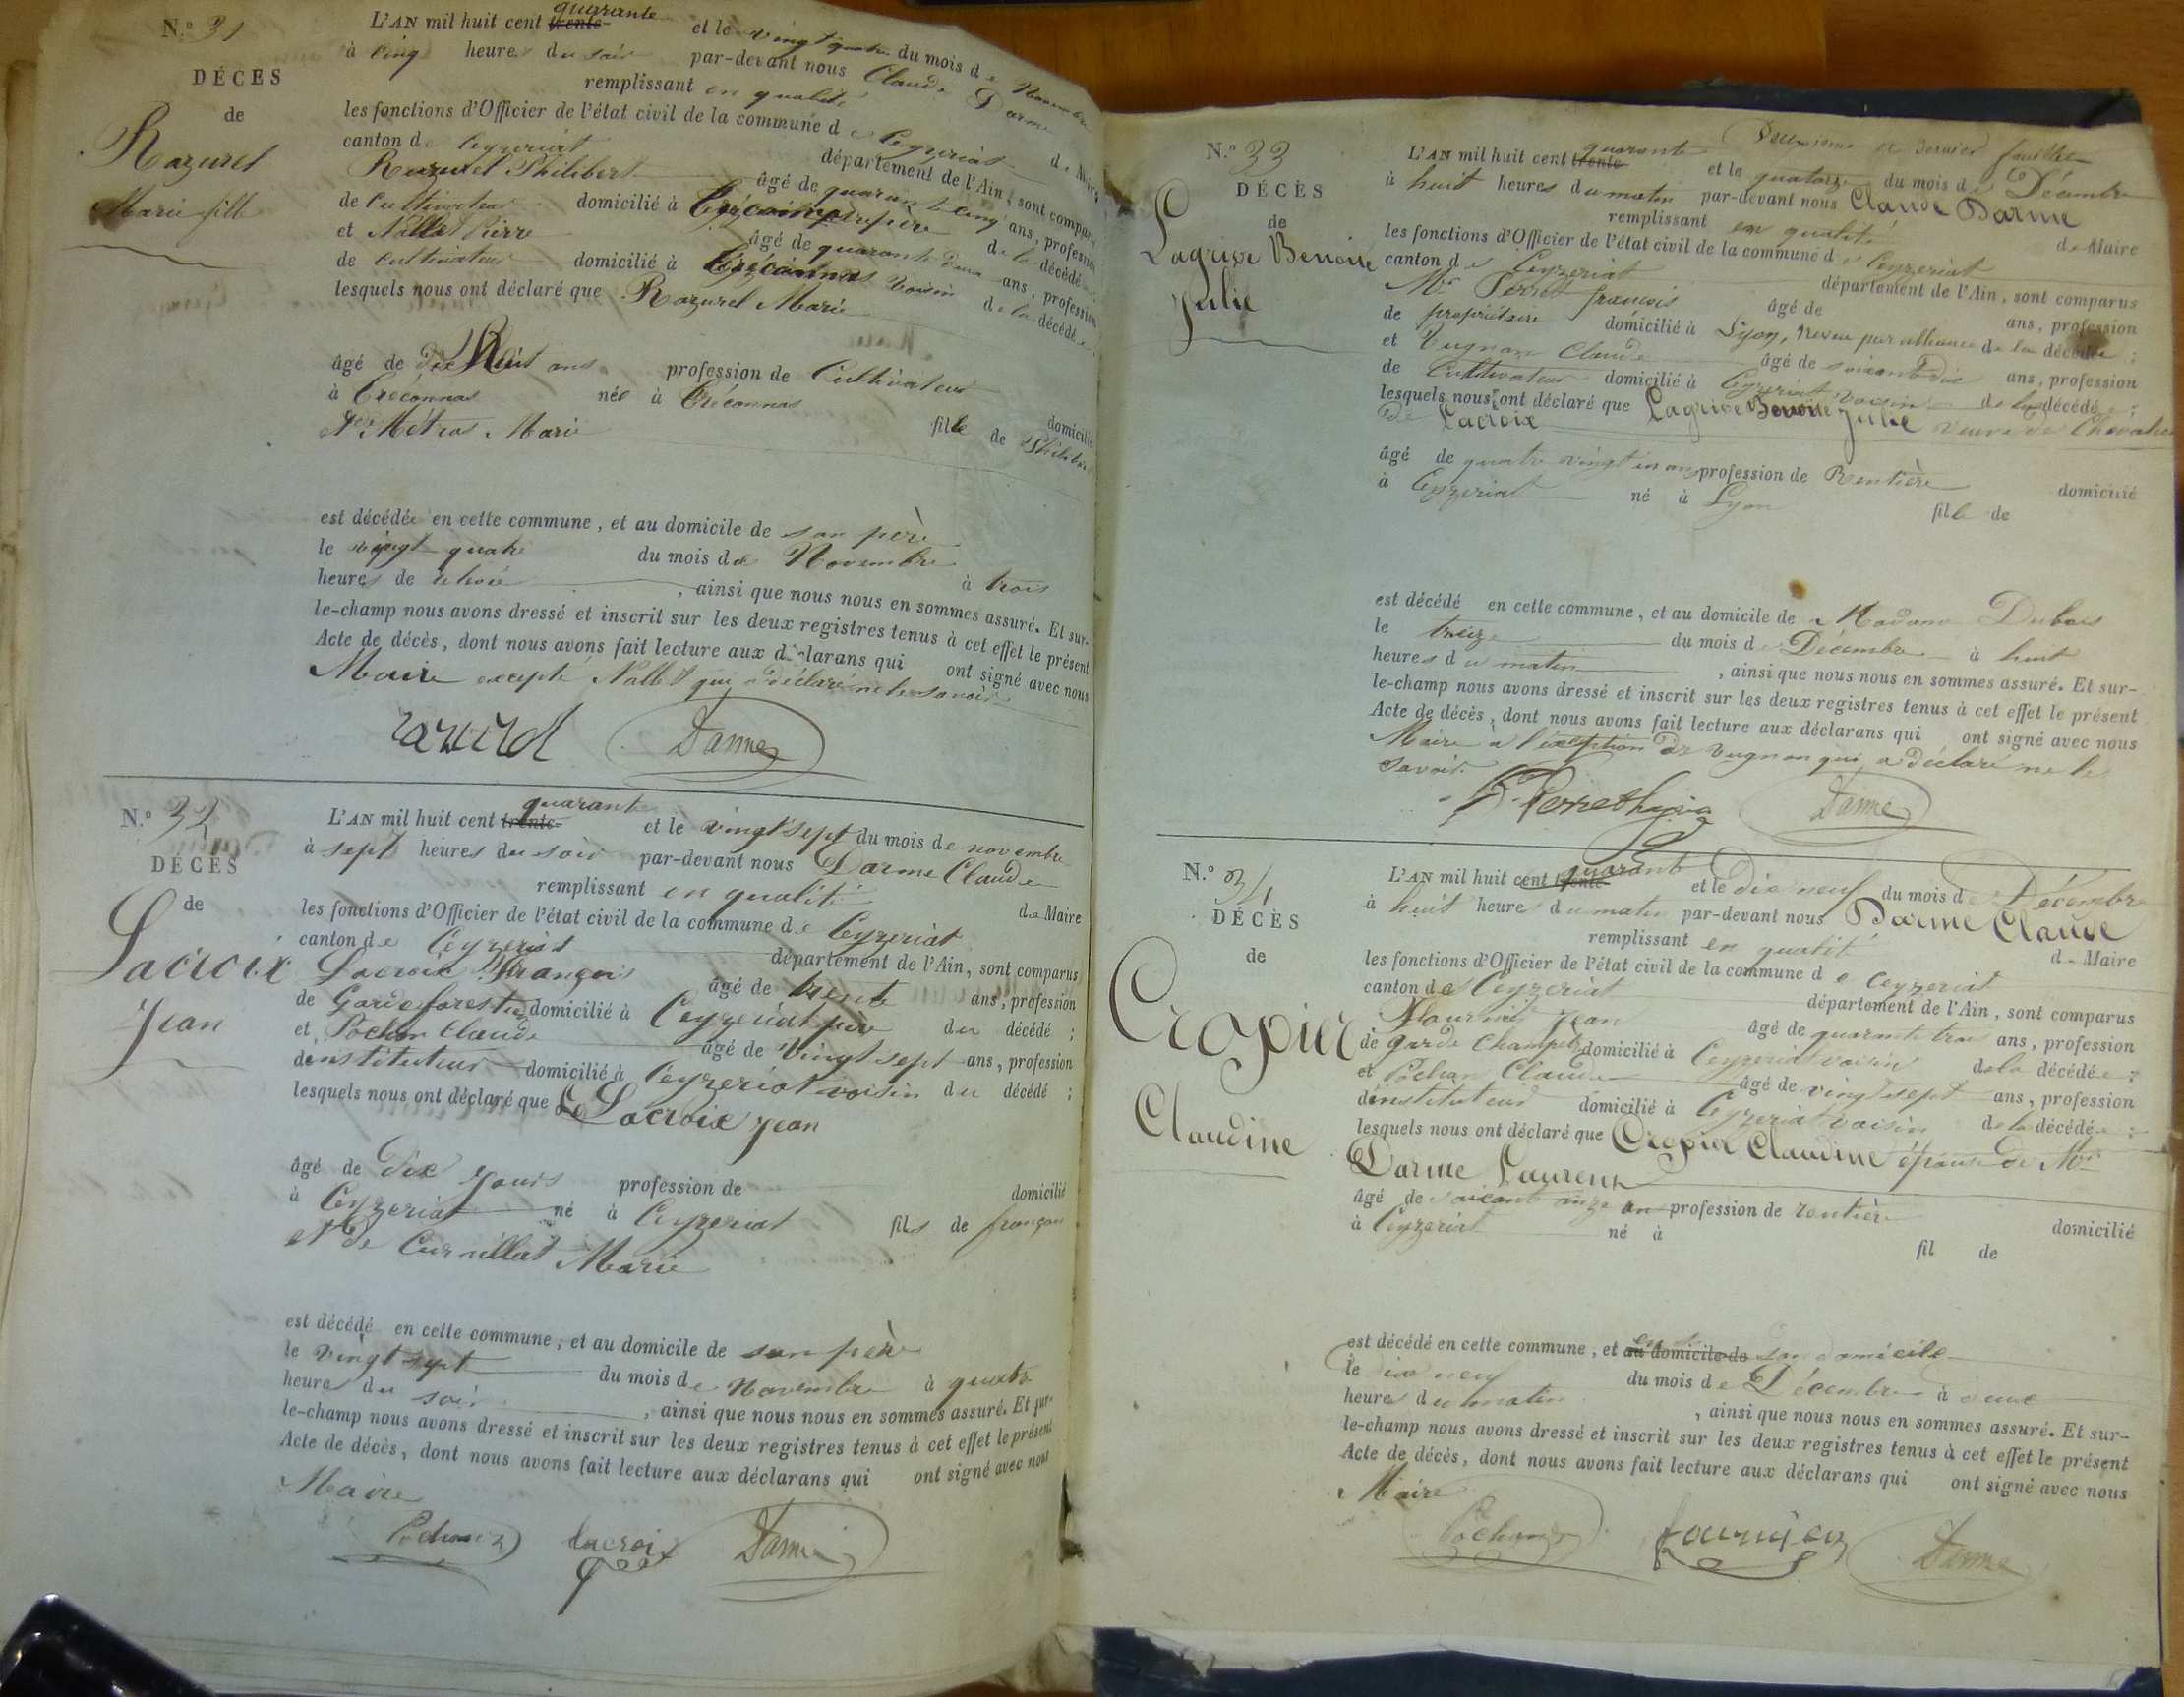 N.º 31
DÉCÈS
de
Razurel
Marie fille
L'AN mil huit cent trente quarante et le vingt quatre du mois de Novembre
à cinq heures du soir par-devant nous Claude Darme
remplissant en qualité de Maire
les fonctions d'Officier de l'état civil de la commune de Ceyzeriat
canton de Ceyzeriat département de l'Ain, sont comparus
Razurel Philibert âgé de quarante cinq ans, profession
de Cultivateur domicilié à Créconnas père de la décédée
et Nallet Pierre âgé de quarante deux ans, profession
de cultivateur domicilié à Créconnas voisin de la décédée
lesquels nous ont déclaré que Razurel Marie
âgé de dix huit ans profession de Cultivateur domicilié
à Créconnas née à Créconnas fille de Philibert
et de Métras Marie
est décédée en cette commune, et au domicile de son père
le vingt-quatre du mois de Novembre à trois
heures de , ainsi que nous nous en sommes assuré. Et sur-
le-champ nous avons dressé et inscrit sur les deux registres tenus à cet effet le présent
Acte de décès, dont nous avons fait lecture aux déclarans qui ont signé avec nous
Maire excepté Nallet qui a déclaré ne le savoir
razurel Darme
N.º 32
DÉCÈS
de
Lacroix
Jean
L'AN mil huit cent trente quarante et le vingt sept du mois de novembre
à sept heures du soir par-devant nous Darme Claude
remplissant en qualité de Maire
les fonctions d'Officier de l'état civil de la commune de Ceyzeriat
canton de Ceyzeriat département de l'Ain, sont comparus
Lacroix François âgé de trente ans, profession
de Garde forestier domicilié à Ceyzeriat père du décédé ;
et Pochon Claude âgé de vingt sept ans, profession
d'instituteur domicilié à Ceyzeriat voisin du décédé ;
lesquels nous ont déclaré que Lacroix Jean
âgé de dix jours profession de domicilié
à Ceyzeriat né à Ceyzeriat fils de françois
et de Curnillat Marie
est décédé en cette commune, et au domicile de son père
le vingt sept du mois de Novembre à quatre
heures du soir , ainsi que nous nous en sommes assuré. Et sur-
le-champ nous avons dressé et inscrit sur les deux registres tenus à cet effet le présent
Acte de décès, dont nous avons fait lecture aux déclarans qui ont signé avec nous
Maire
Pochon lacroix Darme
Deuxieme et dernier feuillet
N.º 33
DÉCÈS
de
Lagrive Benoite
Julie
L'AN mil huit cent trente quarante et le quatorze du mois de Décembre
à huit heures du matin par-devant nous Claude Darme
remplissant en qualité de Maire
les fonctions d'Officier de l'état civil de la commune de Ceyzeriat
canton de Ceyzeriat département de l'Ain, sont comparus
Mr Perret françois âgé de ans, profession
de propriétaire domicilié à Lyon, neveu par alliance de la décédée ;
et Vugnon Claude âgé de soixante dix ans, profession
de Cultivateur domicilié à Ceyzeriat voisin de la décédée ;
lesquels nous ont déclaré que Lagrive Benoite Julie veuve de Chevalier
de Lacroix
âgé de quatre vingt un ans profession de Rentière domicilié
à Ceyzeriat né à Lyon fille de
est décédé en cette commune, et au domicile de Madame Dubois
le treize du mois de Décembre à huit
heures du matin , ainsi que nous nous en sommes assuré. Et sur-
le-champ nous avons dressé et inscrit sur les deux registres tenus à cet effet le présent
Acte de décès, dont nous avons fait lecture aux déclarans qui ont signé avec nous
Maire à l'éxception de Vugnon qui a déclaré ne le
savoir.
Darme
N.º 34
DÉCÈS
de
Cropier
Claudine
L'AN mil huit cent trente quarante et le dix neuf du mois de Décembre
à huit heures du matin par-devant nous Darme Claude
remplissant en qualité de Maire
les fonctions d'Officier de l'état civil de la commune de Ceyzeriat
canton de Ceyzeriat département de l'Ain, sont comparus
Jean âgé de quarante trois ans, profession
de garde champetre domicilié à Ceyzeriat voisin de la décédée ;
et Pochon Claude âgé de vingt sept ans, profession
d'instituteur domicilié à Ceyzeriat voisin de la décédée ;
lesquels nous ont déclaré que Cropier Claudine épouse de Mr
Darme Laurent
âgé de soixante onze ans profession de rentière domicilié
à Ceyzeriat né à fil de
est décédé en cette commune, et au domicile de en son domicile
le dix neuf du mois de Décembre à deux
heures du matin , ainsi que nous nous en sommes assuré. Et sur-
le-champ nous avons dressé et inscrit sur les deux registres tenus à cet effet le présent
Acte de décès, dont nous avons fait lecture aux déclarans qui ont signé avec nous
Maire
Pochon Darme